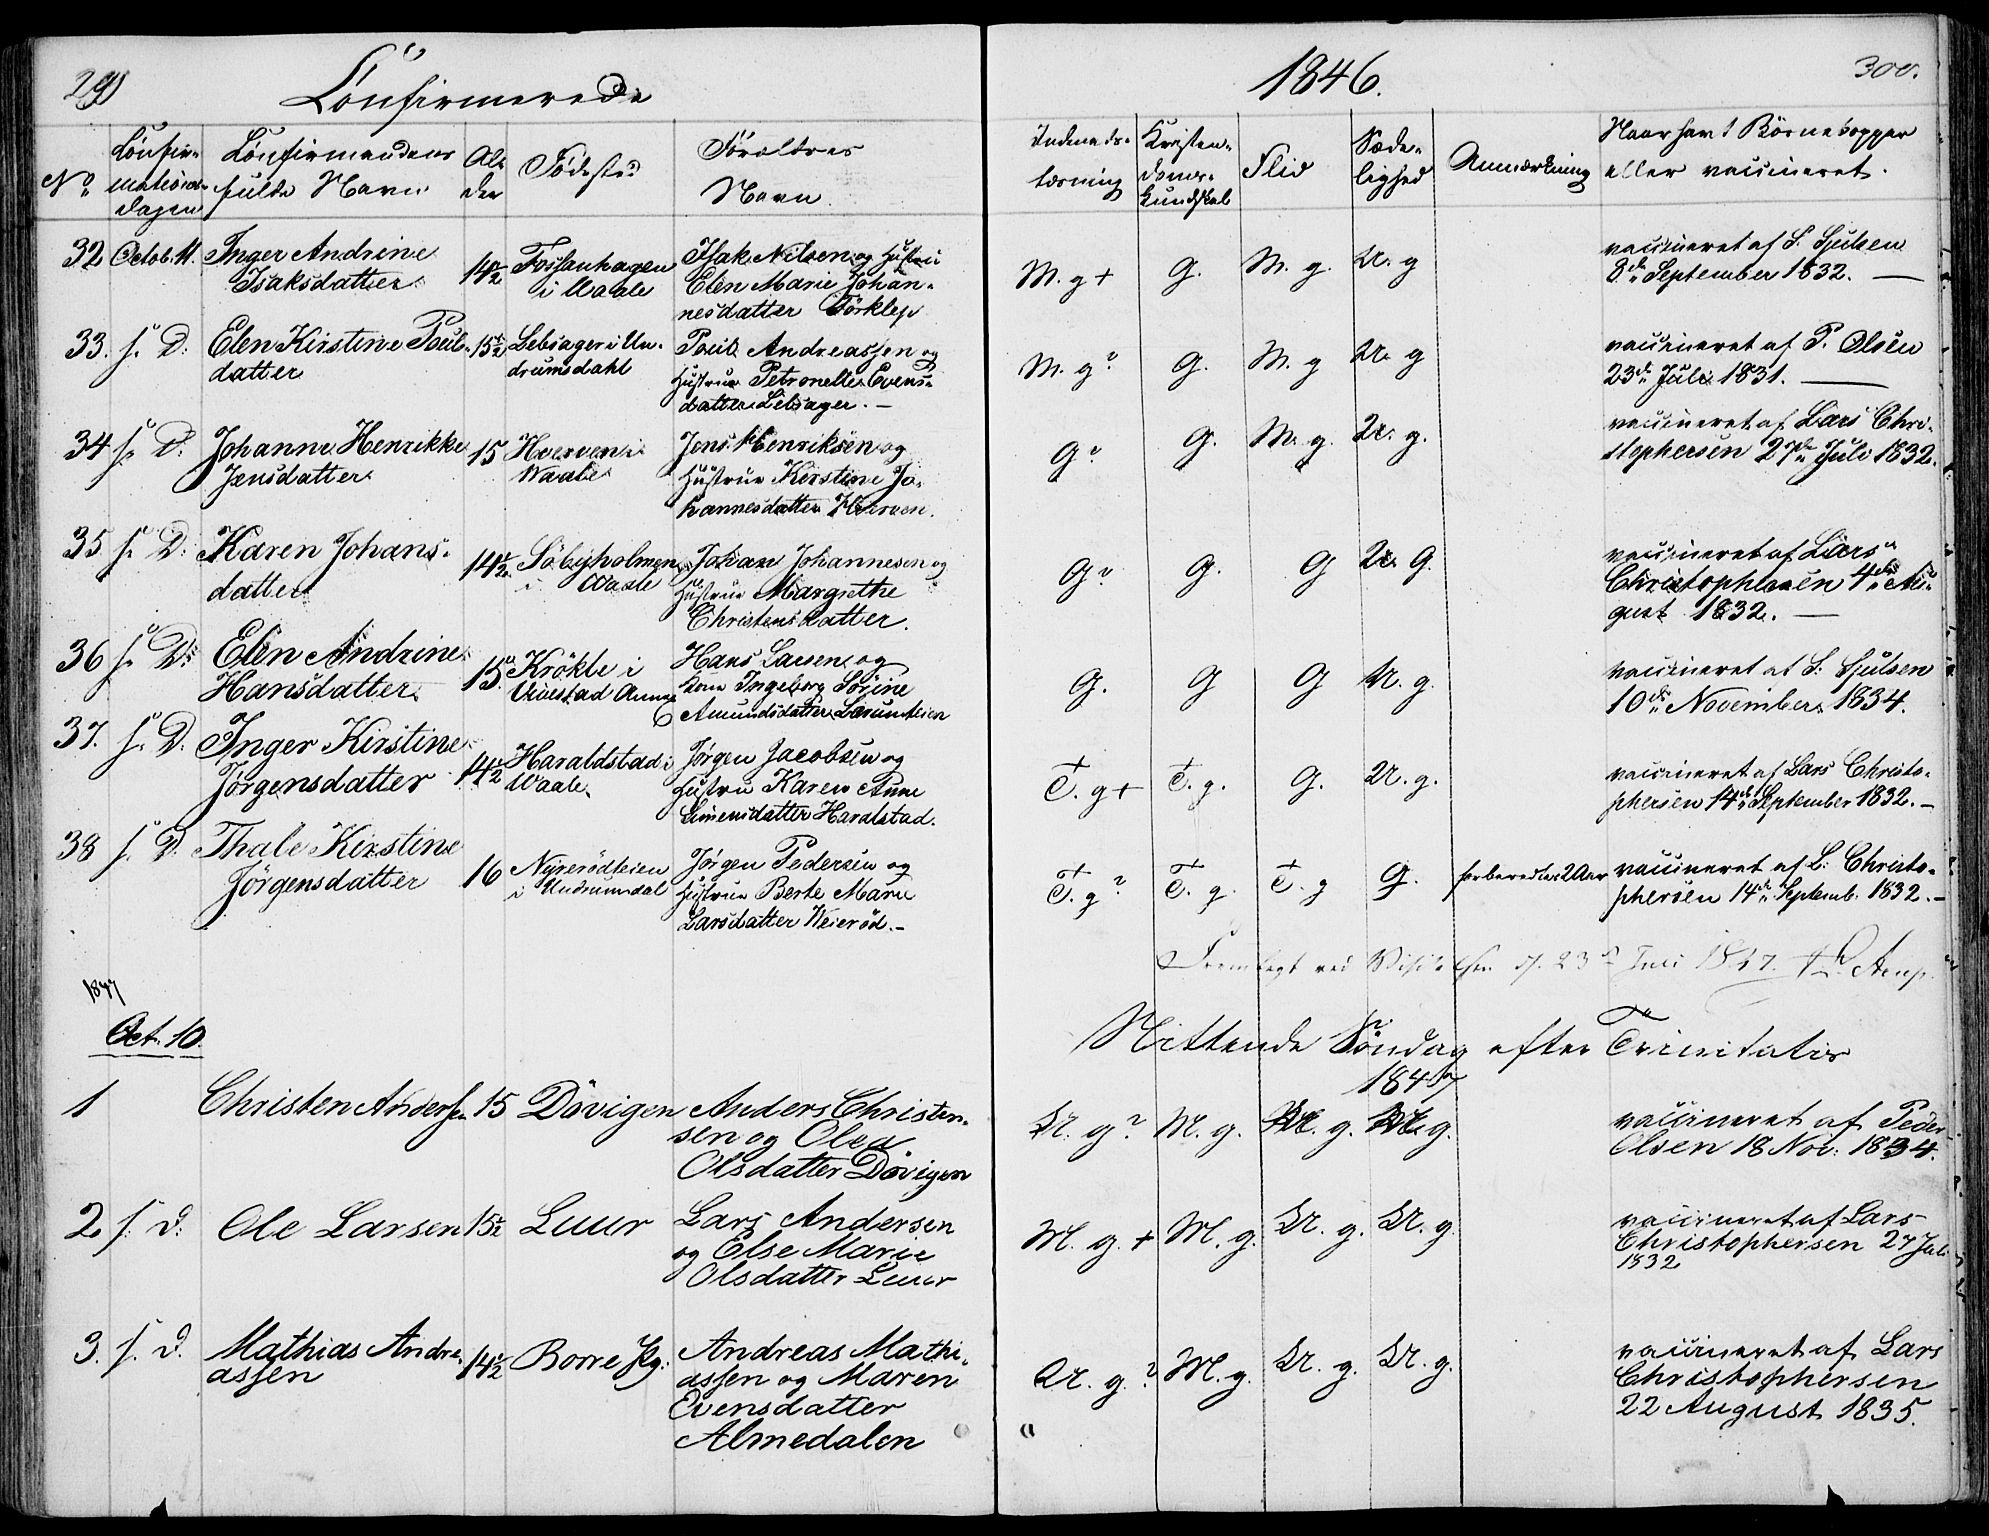 299
Confirmerede
1846.
300.
No
Confir-
mations-
dagen
Confirmandens
fulde Navn
Al-
der
Fødested
Foreldres
Navn.
Indenads-
læsning
Kristen-
doms-
kundskab
Flid
Sæde-
lighed
Anmærkning
Naar havt Børnekopper
eller vaccineret.
32 Octob. 11. Inger Andrine
Isaksdatter
14 1/2
Fossanhagen
i Waale
Isak Nilsen og Hustru
Elen Marie Johan-
nesdatter Törklep
M. g + G. M. g. M. g
vaccineret af S. Sjulsen
8de September 1832. —
33. s. D. Elen Kirstine Pouls-
datter
15 1/2
Lebsager i Un-
drumsdahl
Poul Andreassen og
Hustrue Petronelle Evens-
datter Lebsager. —
M. g? G. M. g M. g
vaccineret af P. Olsen
23de Juli 1831. —
34 s. D. Johanne Henrikke
Jensdatter
15
Hverven i
Waale
Jens Henriksen og
Hustrue Kirstine Jo-
hannesdatter Hverven.
G? G. M. g. M. g.
vaccineret af Lars Chri-
stophersen 27de Juli 1832.
35 s. D. Karen Johans-
datter
14 1/2
Söbyholmen
i Waale
Johan Johannesen og
Hustrue Margrethe
Christensdatter.
G? G. G M. G.
vaccineret af Lars
Christophersen 4de Au-
gust 1832. —
36 s. D. Elen Andrine
Hansdatter
15
Krökle i
Vivestad Annex
Hans Larsen og
Kone Ingeborg Sörine
Amundsdatter
G. G G M. g.
vaccineret af S. Sjulsen
10de November 1834.
37. s. D. Inger Kirstine
Jörgensdatter
14 1/2
Haraldstad i
Waale
Jörgen Jacobsen og
Hustru Karen Anne
Simensdatter Haralstad.
T. g + T. g. G. M. g.
vaccineret af Lars Christo-
phersen 14de September 1832. —
38 s. D. Thale Kirstine
Jörgensdatter
16
Nyrerödteien
i Undrumsdal
Jörgen Pedersen og
Hustrue Berte Marie
Larsdatter Weieröd. —
T. g? T. g. T. g G.
forberedet 2 Aar
vaccineret af L. Christo-
phersen 14de Septemb. 1832. —
Fremlagt ved Visitatsen d. 23de Juli 1847. Arup.
1847
Oct. 10.
Nittende Søndag efter Trinitatis
1847
1 Christen Andersen 15 Dövigen
Anders Christen-
sen og Olea
Olsdatter Dövigen
M. g? M. g. M. g. M. g.
vaccineret af Peder
Olsen 18 Nov: 1834.
2 s. d. Ole Larsen 15 1/2 Luur
Lars Andersen
og Else Marie
Olsdatter Luur
M. g. + M. g. M. g. M. g.
vaccineret af Lars
Christophersen 27 Juli
1832
3. s. d. Mathias Andre-
assen
14 1/2 Borre Pg:
Andreas Mathi-
assen og Maren
Evensdatter
Almedalen
M. g.? M. g. M. g. M. g.
vaccineret af Lars
Christophersen
22 August 1835.